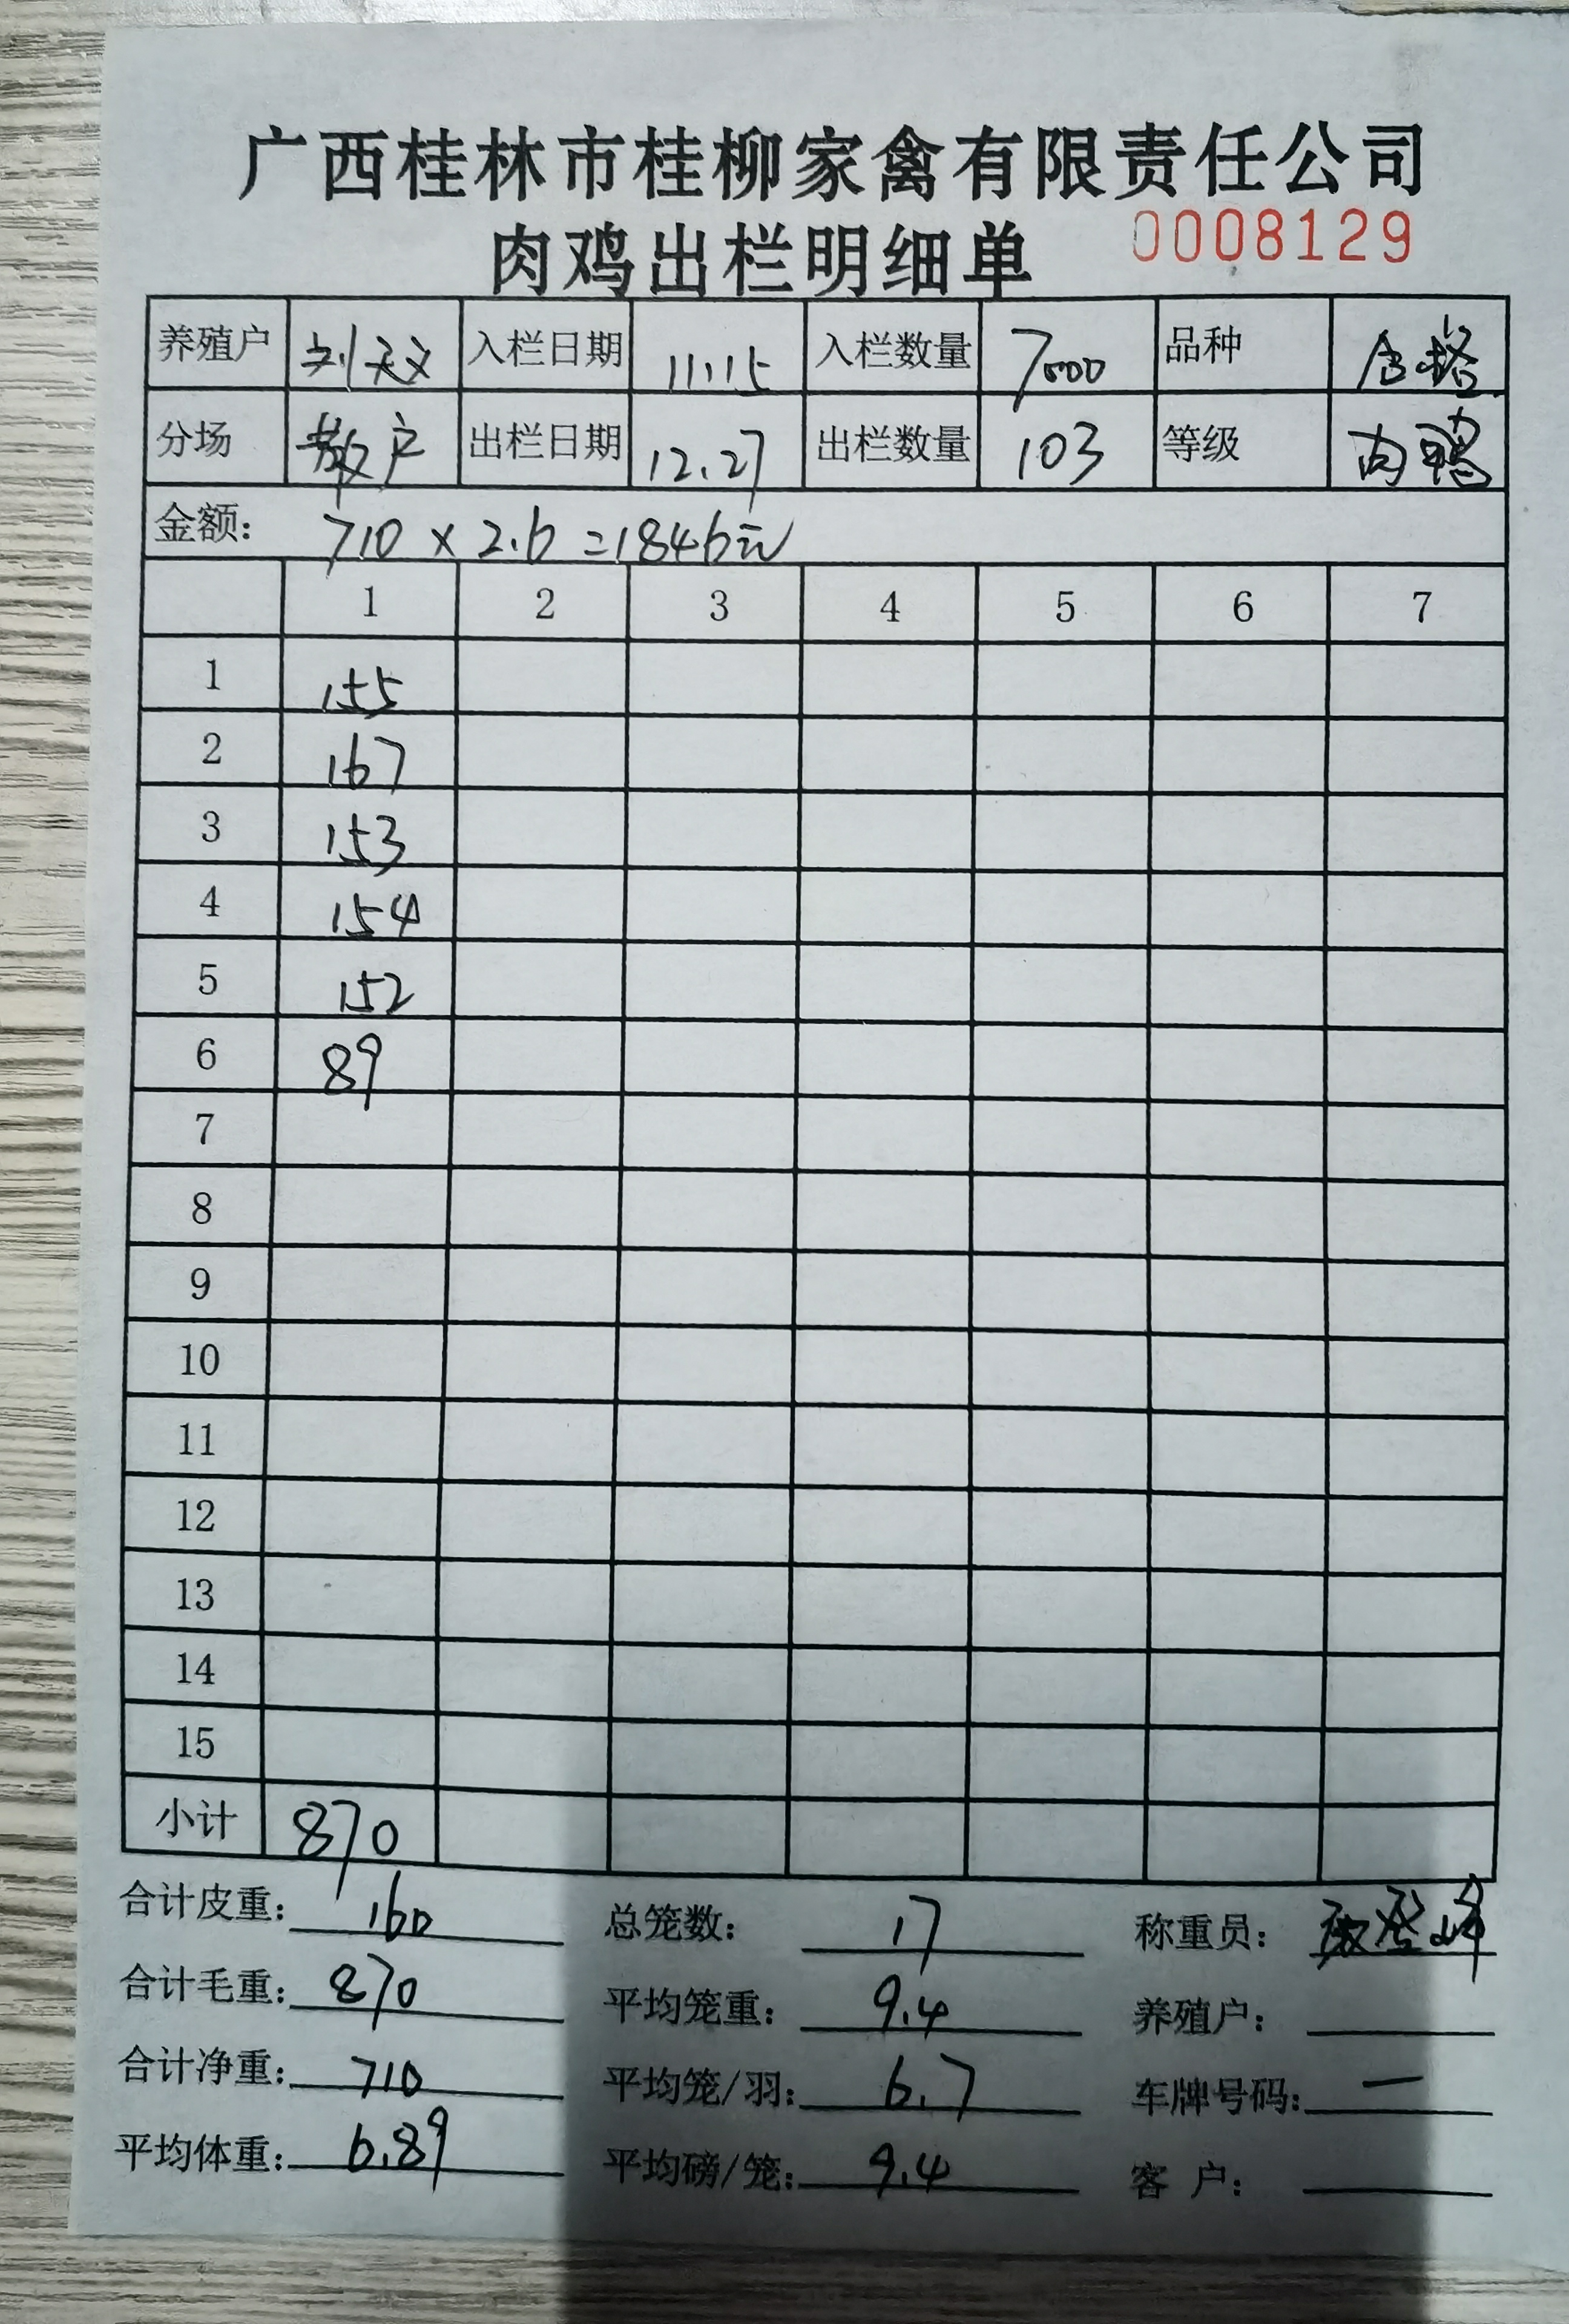 广西桂林市桂柳家禽有限责任公司
肉鸡出栏明细单 0008129
养殖户 刘天文 入栏日期 11.15 入栏数量 7000 品种 合格
分场 散户 出栏日期 12.27 出栏数量 103 等级 肉鸭
金额: 710 x 2.6 = 1846元
1 2 3 4 5 6 7
1 155
2 167
3 153
4 154
5 152
6 89
7
8
9
10
11
12
13
14
15
小计 870
合计皮重: 160 总笼数: 17 称重员:
合计毛重: 870 平均笼重: 9.4 养殖户:
合计净重: 710 平均笼/羽: 6.7 车牌号码: 一
平均体重: 6.89 平均磅/笼: 9.4 客 户: